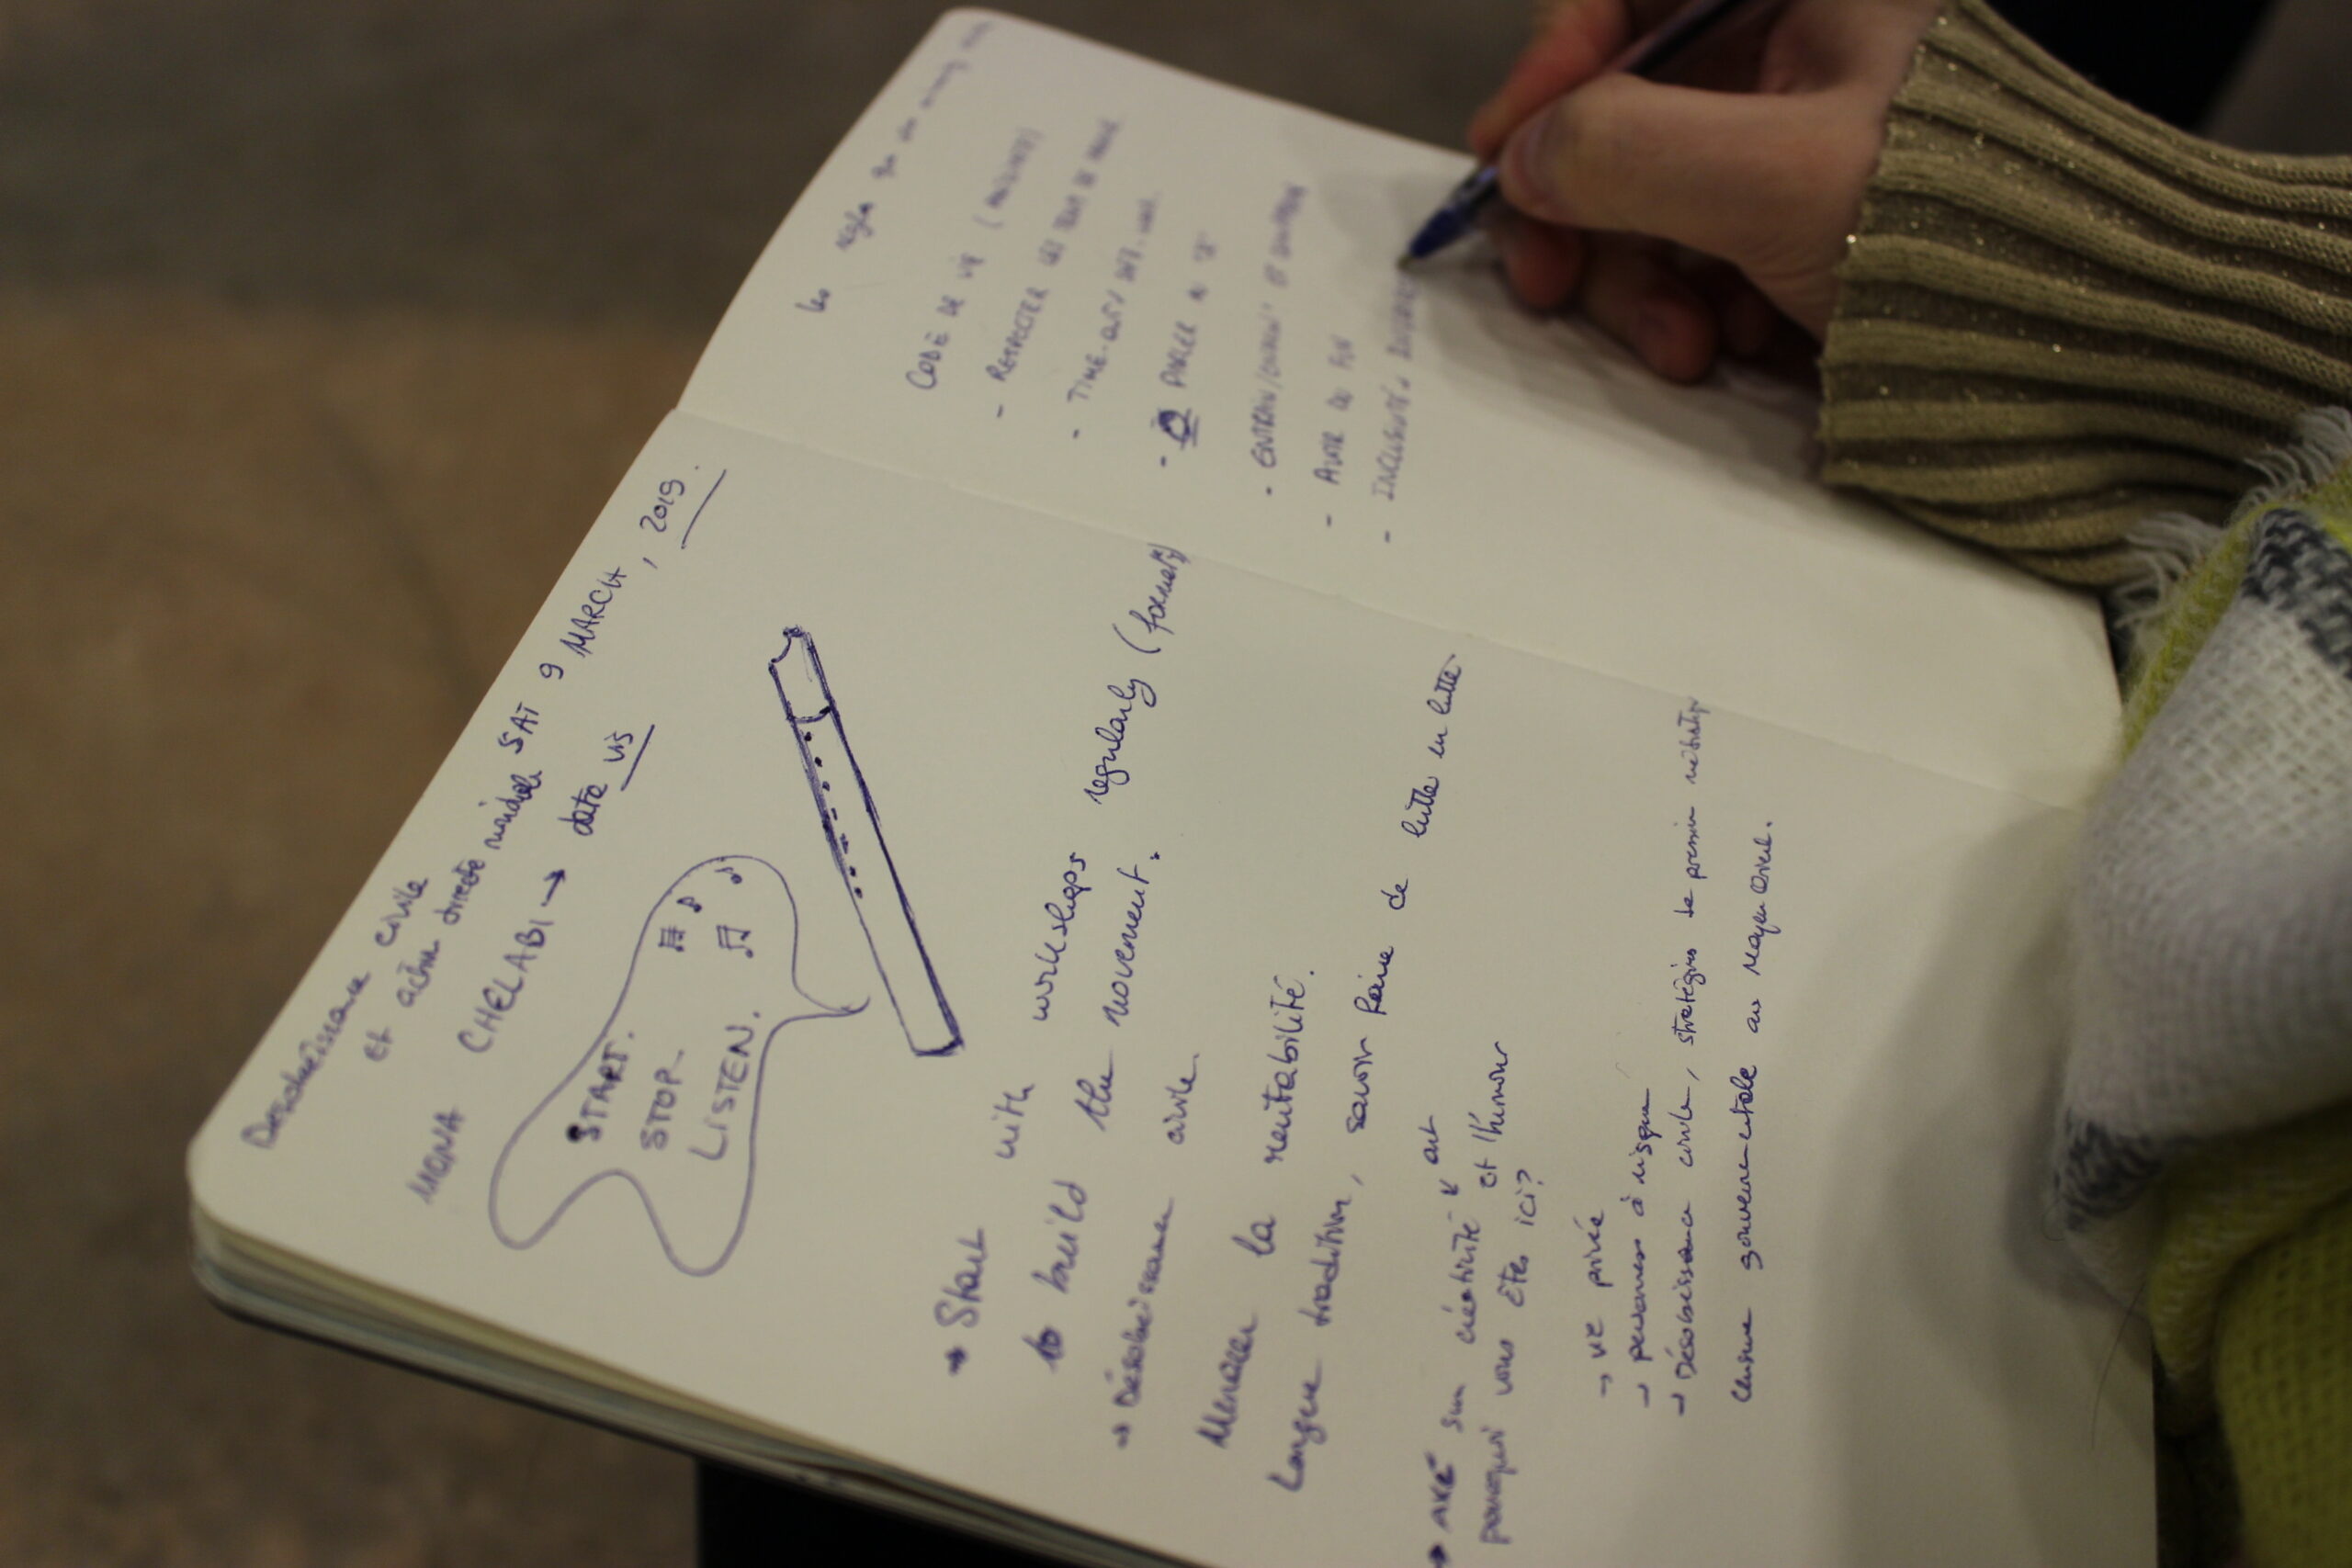 Desobeissance civile
et action directe
SAT 9 MARCH, 2019.
MONA CHELABI → data vis
START.
STOP
LISTEN.
→ Start with workshops regularly
to build the movement.
→ Désobeissance civile
Menacer la rentabilité.
Longue tradition, savoir faire de lutte en lutte
→ AXÉ sur créativité art
et l'humour
pourquoi vous êtes ici?
→ vie privée
→ personnes à risque
→ Désobéissance civile, stratégies de
Censure gouvernementale au moyen Orient.
CODE DE VIE
- RESPECTER LES
- TIME-OUT
- PARLER AU "JE"
- AVOIR DU FUN
- INCLUSIVITÉ